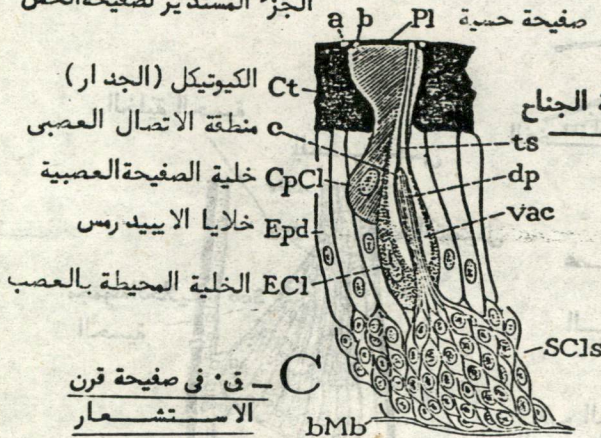 الجزء المستدير لصفيحة الحس
صفيحة حسية
a b Pl
الكيوتيكل (الجدار) Ct
ة الجناح
منطقة الاتصال العصبى c
ts
خلية الصفيحة العصبية CpCl
dp
خلايا الايبيدرمس Epd
vac
الخلية المحيطة بالعصب ECl
SCls
C – ق٠ فى صفيحة قرن
الاستشعار
bMb